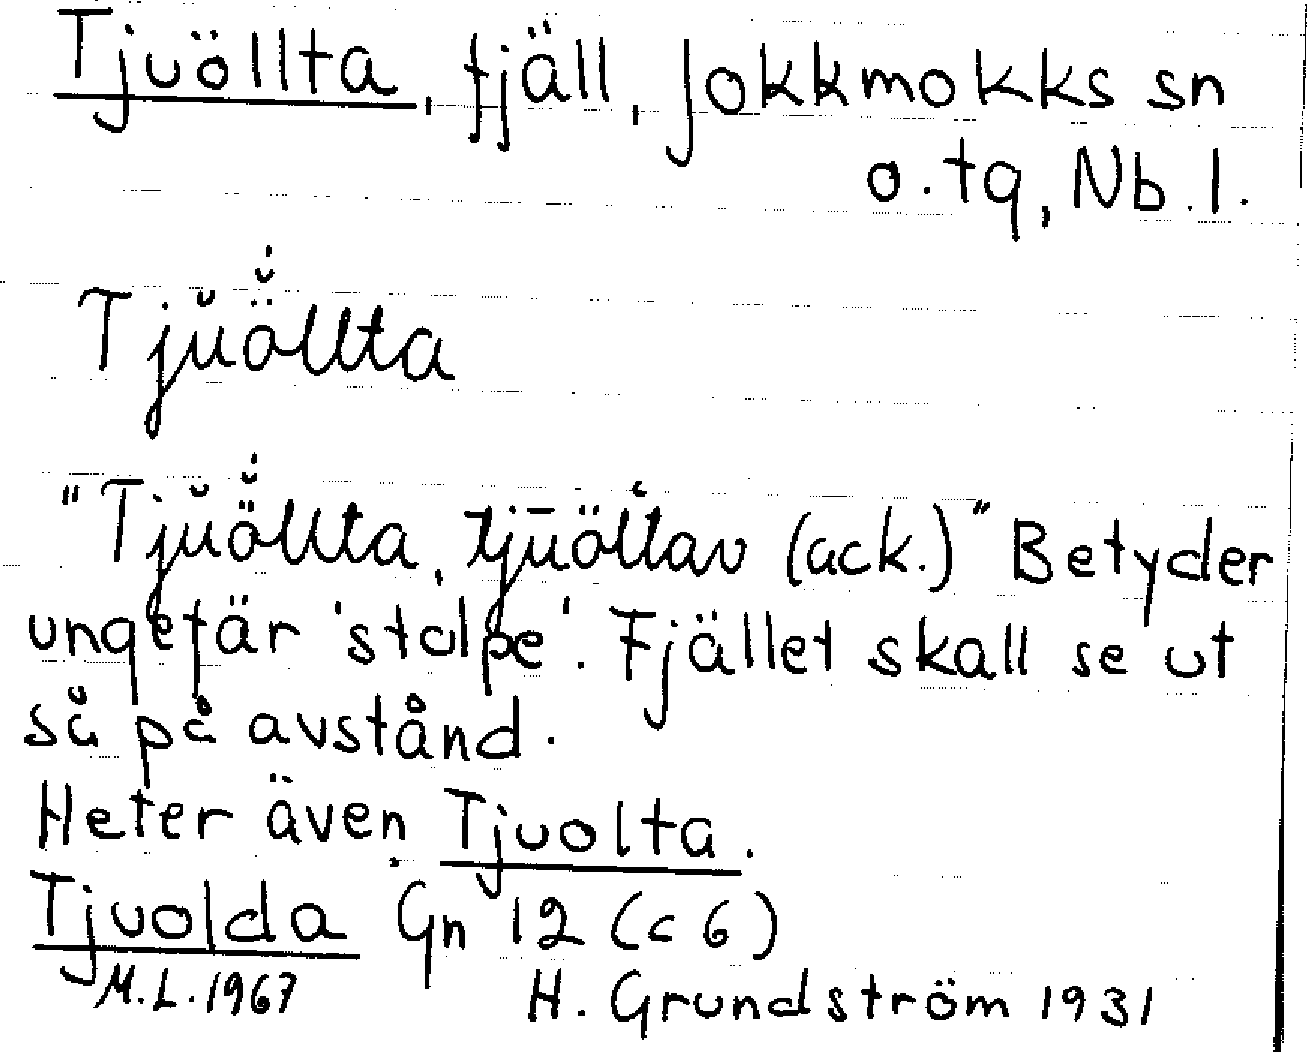 Tjuöllta, fjäll, Jokkmokks sn
o. tg, Nb. l.
Tjŭö̆́llta
"Tjŭö̆́llta, tjūöl̆tav (ack.)" Betyder
ungefär 'stolpe'. Fjället skall se ut
så på avstånd.
Heter även Tjuolta.
Tjuolda Gn 12 (c 6)
M.L. 1967 H. Grundström 1931